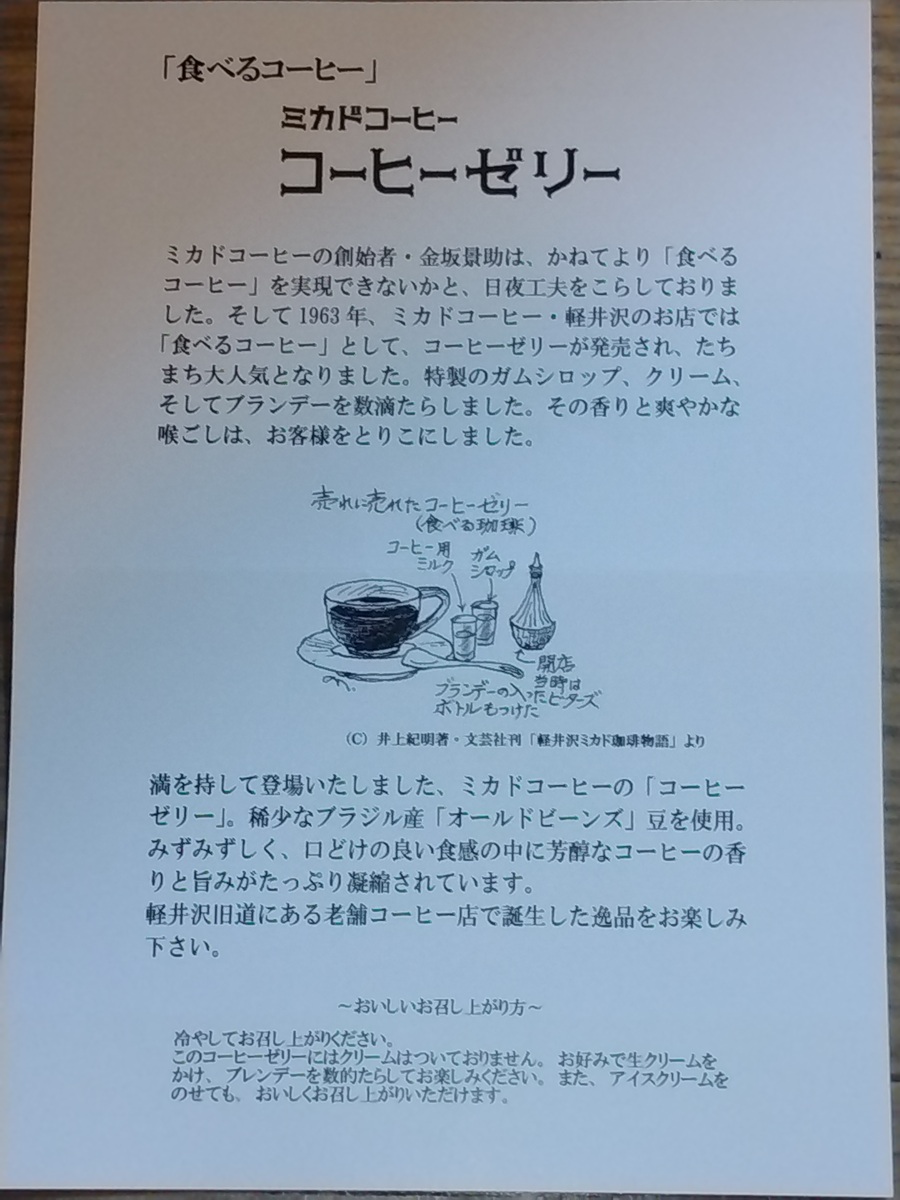 「食べるコーヒー」
ミカドコーヒー
コーヒーゼリー
ミカドコーヒーの創始者・金坂景助は、かねてより「食べる
コーヒー」を実現できないかと、日夜工夫をこらしておりま
した。そして1963年、ミカドコーヒー・軽井沢のお店では
「食べるコーヒー」として、コーヒーゼリーが発売され、たち
まち大人気となりました。特製のガムシロップ、クリーム、
そしてブランデーを数滴たらしました。その香りと爽やかな
喉ごしは、お客様をとりこにしました。
売れに売れたコーヒーゼリー
(食べる珈琲)
コーヒー用
ミルク
ガム
シロップ
開店
当時は
ビターズ
ブランデーの入った
ボトルもつけた
(C) 井上紀明著・文芸社刊「軽井沢ミカド珈琲物語」より
満を持して登場いたしました、ミカドコーヒーの「コーヒー
ゼリー」。稀少なブラジル産「オールドビーンズ」豆を使用。
みずみずしく、口どけの良い食感の中に芳醇なコーヒーの香
りと旨みがたっぷり凝縮されています。
軽井沢旧道にある老舗コーヒー店で誕生した逸品をお楽しみ
下さい。
～おいしいお召し上がり方～
冷やしてお召し上がりください。
このコーヒーゼリーにはクリームはついておりません。 お好みで生クリームを
かけ、 ブレンデーを数的たらしてお楽しみください。 また、 アイスクリームを
のせても、 おいしくお召し上がりいただけます。